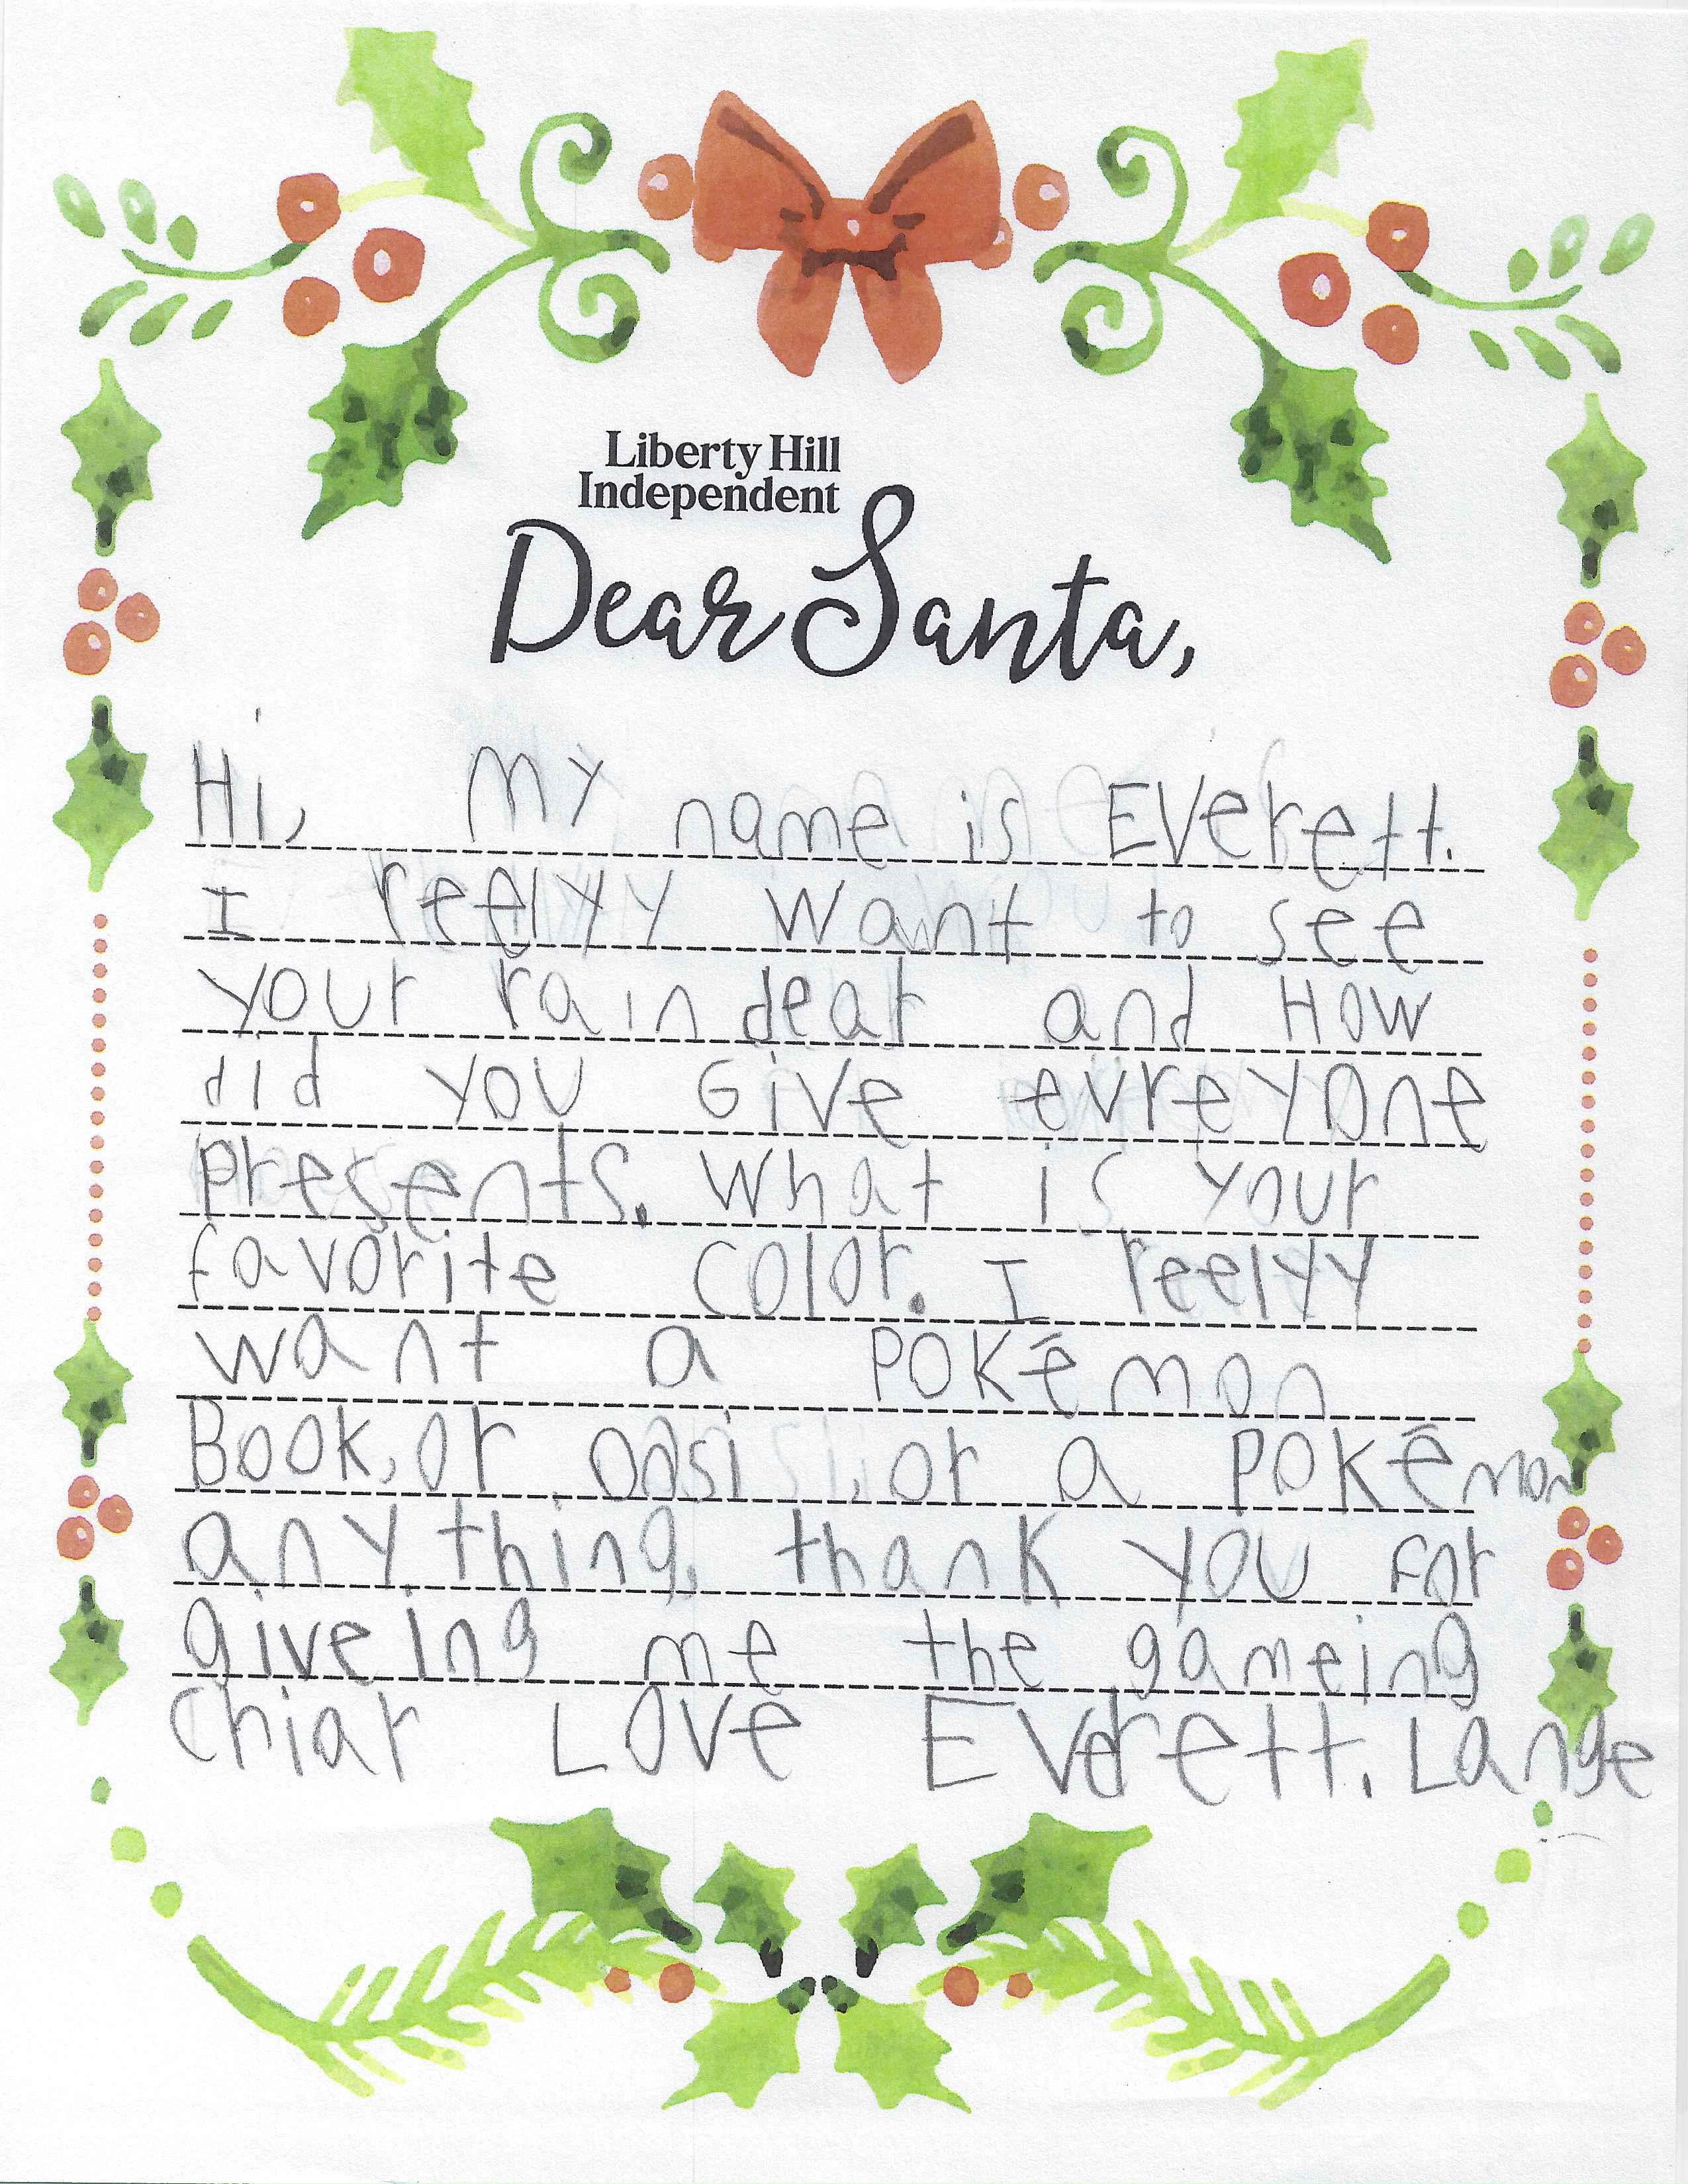 Liberty Hill
Independent
Dear Santa,
Hi, My name is EVerett.
I reelyy want to see
your raindear and How
did you Give evreyone
presents. What is your
favorite color. I reelyy
want a POKēmon
Book, or oasi, or a POKēmon
any thing, thank you for
giveing me the gameing
chiar Love EVerett. Lange